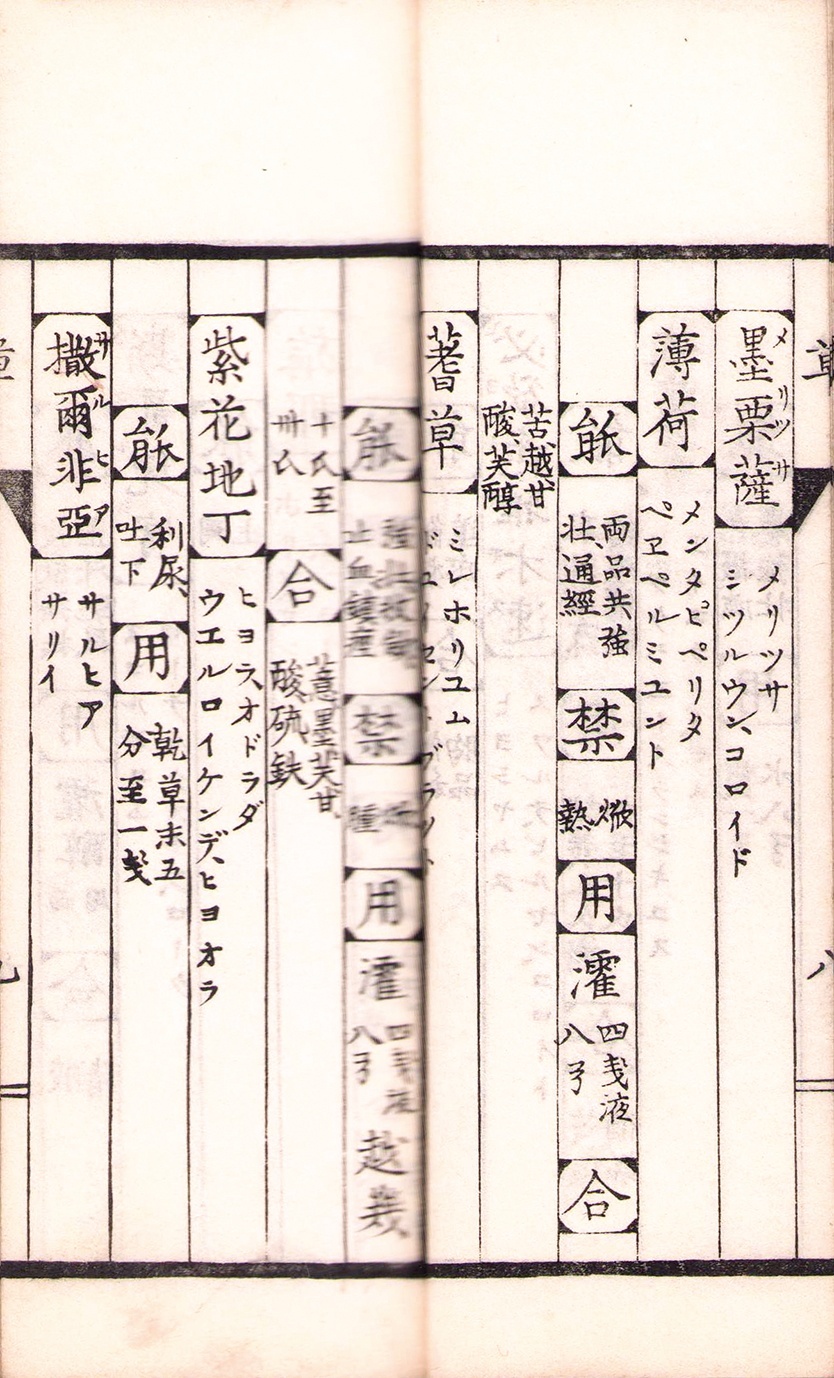 墨栗薩
メリツサ
メリツサ
ミツルウン、コロイド
薄荷
メンタピペリタ
ペエペルミユント
能
両品共強
壮、通經
禁
焮
熱
用
濯
四戔液
八弓
合
苦、越、甘
酸、芙、醇
蓍草
ミレホリユム
能
止血鎮痙
禁
用
濯
四戔液
八弓
越幾
十氏至
卅氏
合
薏、墨、芙、甘、
酸、硫、鉄
紫花地丁
ヒヨラ、オドラダ
ウエルロイケンデ、ヒヨオラ
能
利尿、
吐下
用
乾草末五
分至一戔
撒爾非亞
サルヒア
サルヒア
サリイ